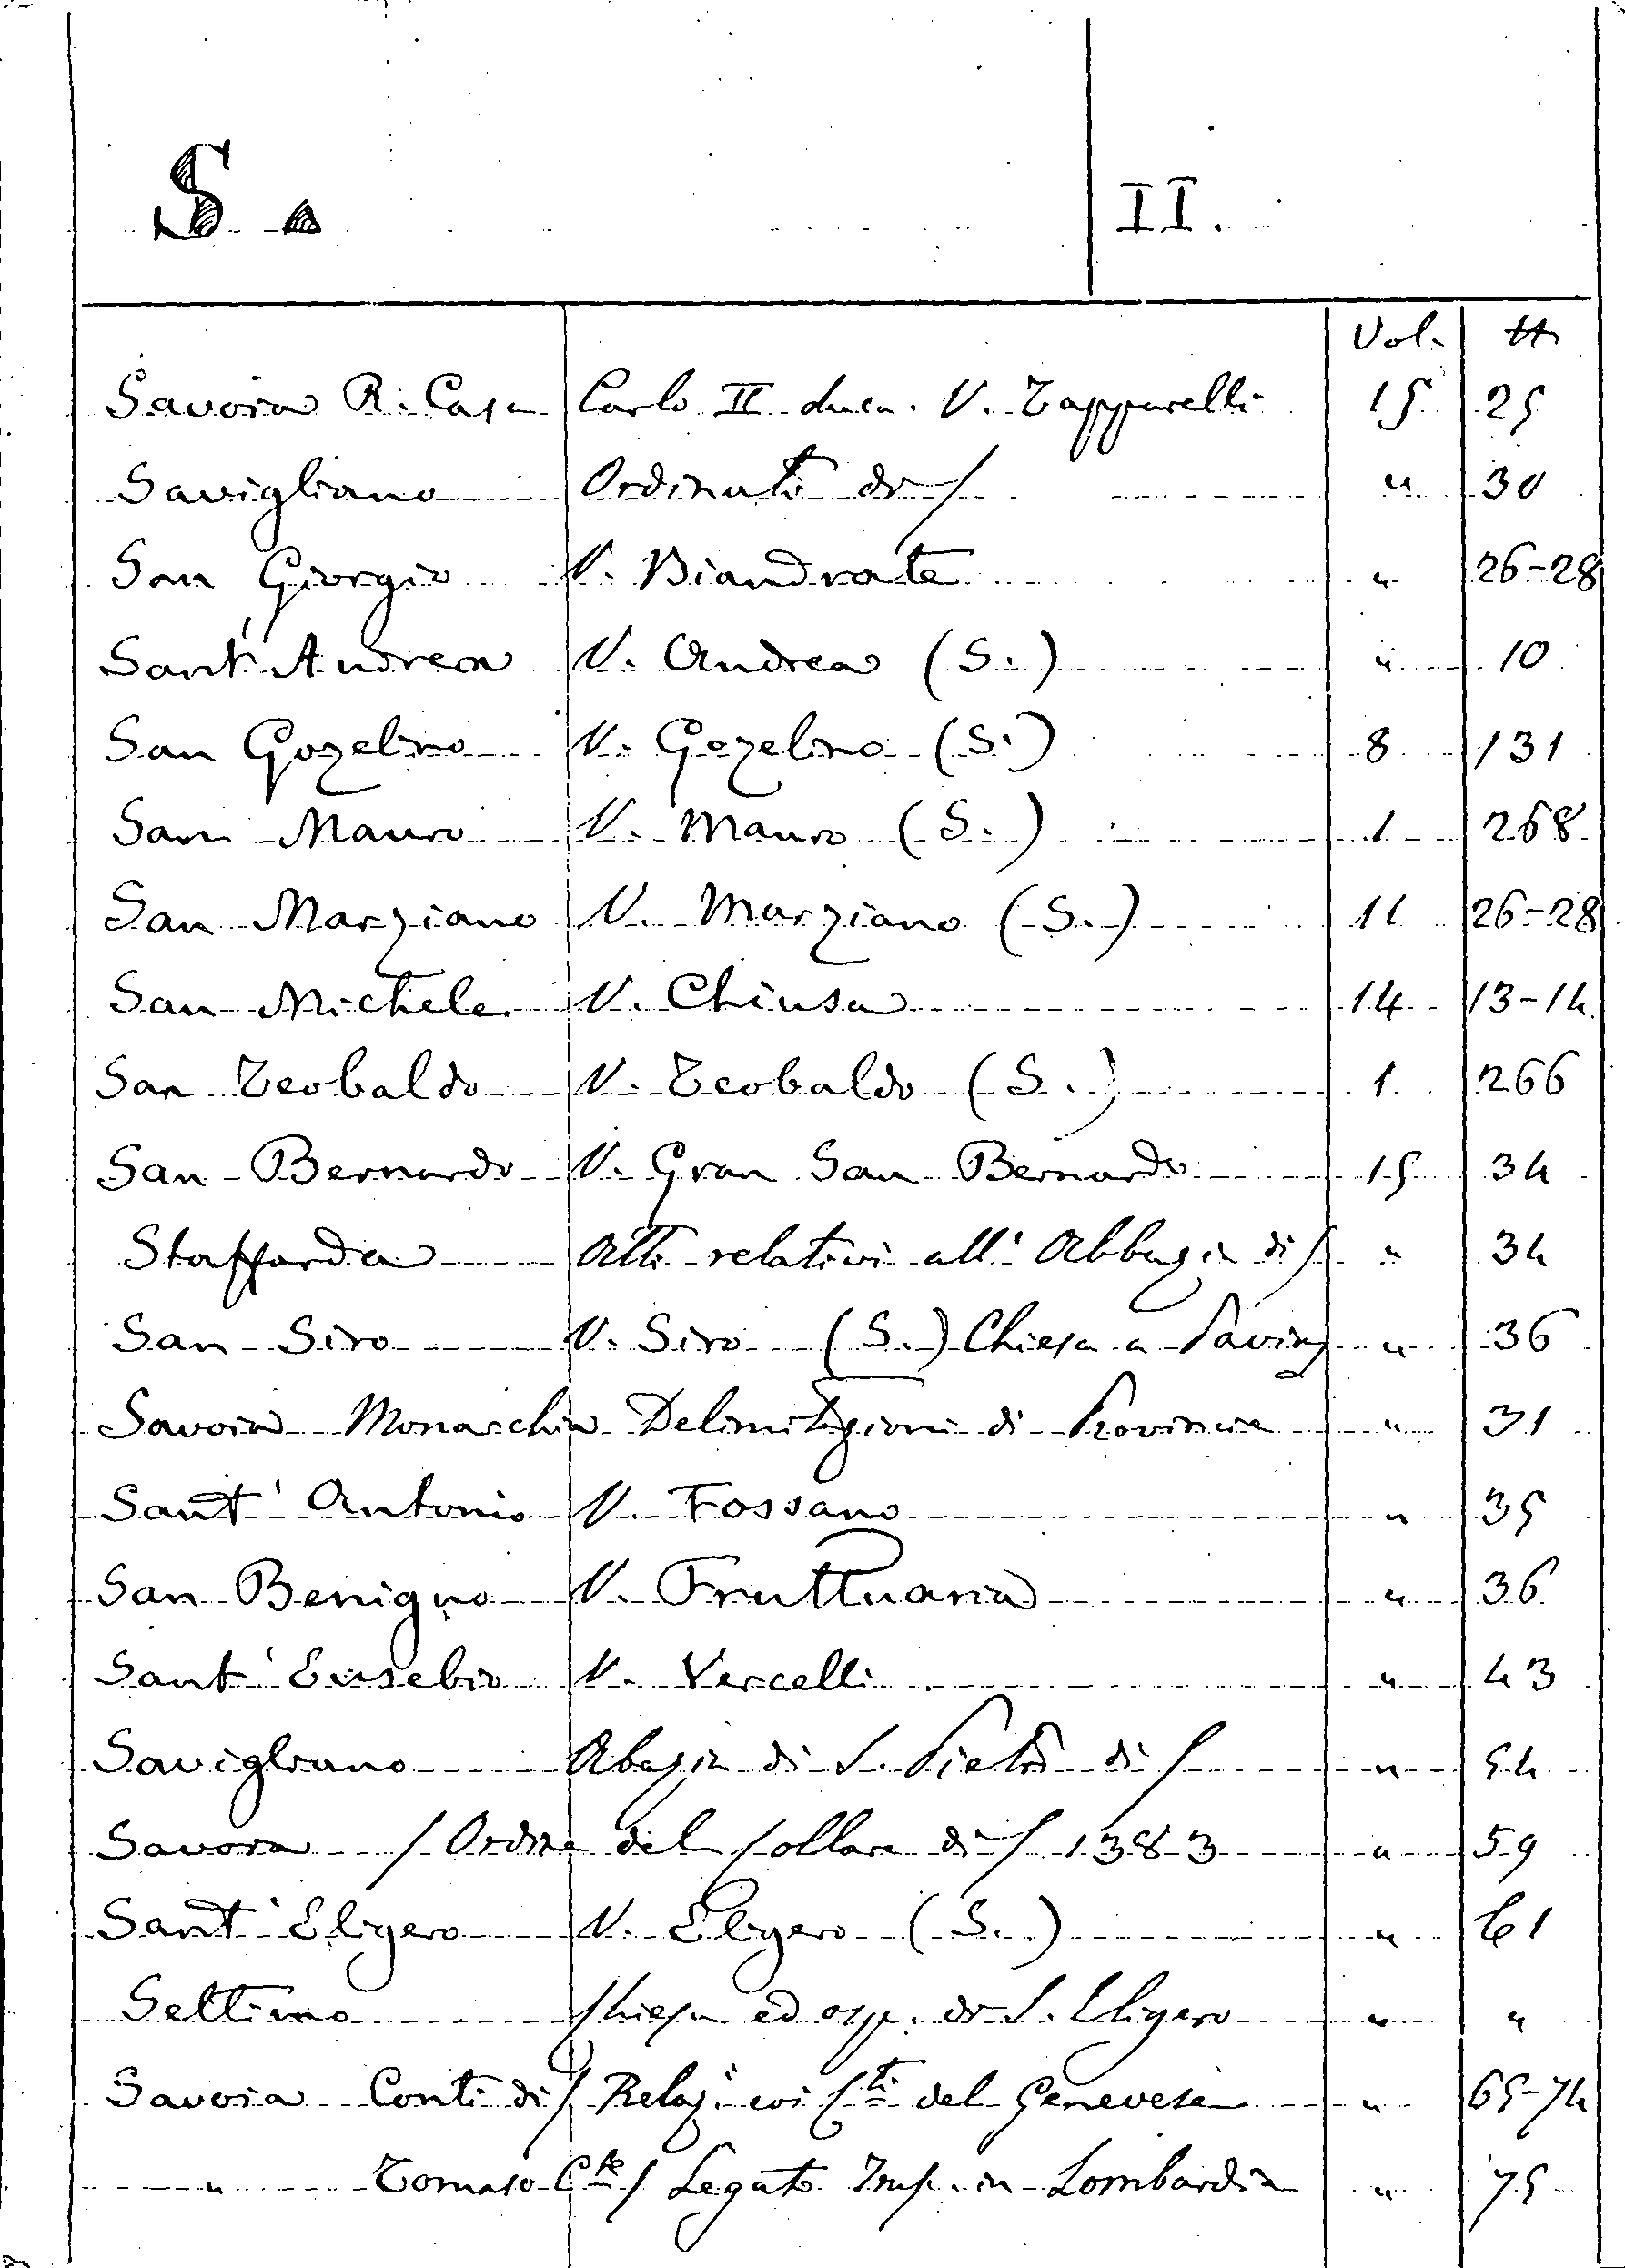 S. II.
Vol. ff
Savoia R. Casa Carlo II duca. V. Tapparelli 15 25
Savigliano Ordinati di S " 30
San Giorgio V. Biandrate " 26-28
Sant'Andrea V. Andrea (S.) " 10
San Gozelino V. Gozelino (S.) 8 131
San Mauro V. Mauro (S.) 1 268
San Marziano V. Marziano (S.) 11 26-28
San Michele V. Chiusa 14 13-14
San Teobaldo V. Teobaldo (S.) 1 266
San Bernardo V. Gran San Bernardo 15 34
Staffarda Atti relativi all'Abbazia di S " 34
San Siro V. Siro (S.) Chiesa a Pavia " 36
Savoia Monarchia Delimitazioni di Provincie " 31
Sant'Antonio V. Fossano " 35
San Benigno V. Fruttuaria " 36
Sant'Eusebio V. Vercelli " 43
Savigliano Abazia di S. Pietro di S " 54
Savoia Ordine del Collare di S 1383 " 59
Sant'Eligero V. Eligero (S.) " 61
Settimo Chiesa ed osp. di S. Eligero " "
Savoia Conti di S Relaz. coi Cti del Genevese " 65-74
" Tomaso Cte S Legato Imp. in Lombardia " 75